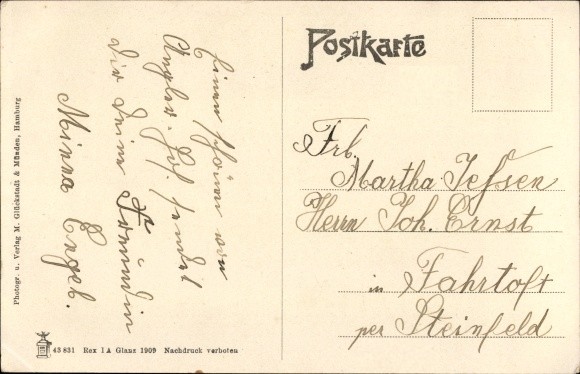 Einen schönen von
Angler. Hof. sendet
dir deine Freundin
Minna Engel.
Photogr. u. Verlag M. Glückstadt & Münden, Hamburg
43831 Rex 1A Glanz 1909 Nachdruck verboten
Postkarte
Frl.
Martha Jessen
Herrn Joh. Ernst
in Fahrtoft
per Steinfeld